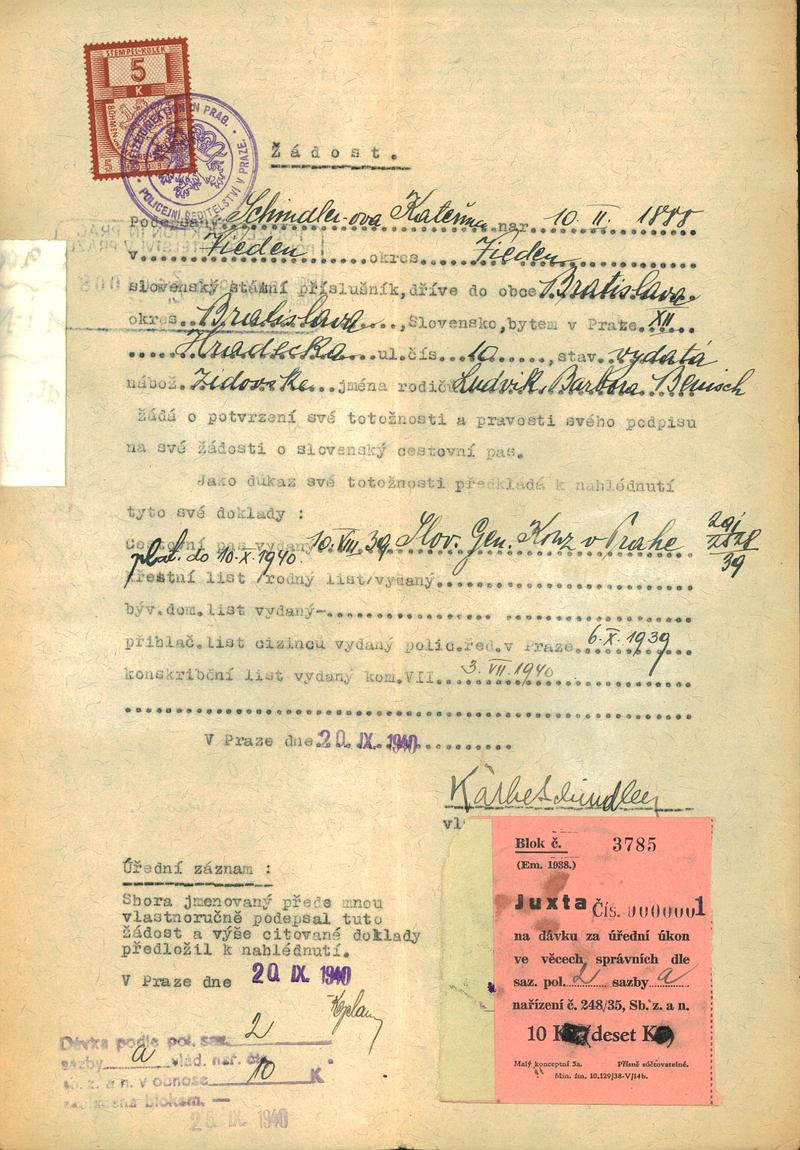 STEMPEL-KOLEK
5
K
BÖHMEN
POLIZEIDIREKTION IN PRAG.
POLICEJNÍ ŘEDITELSTVÍ V PRAZE.
Žádost.
Schindler-ova Kateřina nar. 10. II. 1888
v Vieden okres Vieden
slovenský státní příslušník, dříve do obce Bratislava
okres Bratislava, Slovensko, bytem v Praze XII
Hradecka ul. čís. 10, stav. vydatá
nábož. židovske jména rodičů Ludvik, Barbora Benisch
žádá o potvrzení své totožnosti a pravosti svého podpisu
na své žádosti o slovenský cestovní pas.
Jako důkaz své totožnosti předkládá k nahlédnutí
tyto své doklady :
Cestovní pas vydaný 10. VIII. 39 Slov. Gen. Konz v Prahe
plat. do 10. X. 1940.
39
křestní list /rodný list/ vydaný
býv. dom. list vydaný
přihlaš. list cizinců vydaný polic. řed. v Praze 6. X. 1939
konskribční list vydaný kom. VII. 3. VII. 1940
V Praze dne 20. IX. 1940
Käthe Schindler
vl
Úřední záznam :
Shora jmenovaný přede mnou
vlastnoručně podepsal tuto
žádost a výše citované doklady
předložil k nahlédnutí.
V Praze dne 20. IX. 1940
Dávka podle pol. saz. 2
sazby a vlád. nař. čís.
sb. z. a n. v obnose 10 K
zaplacena blokem. —
25. IX. 1940
Blok č. 3785
(Em. 1938.)
Juxta Čís. 0000001
na dávku za úřední úkon
ve věcech správních dle
saz. pol. 2 sazby a
nařízení č. 248/35, Sb. z. a n.
10 K (deset K)
Malý konceptní 5a. Přísně súčtovatelné.
Min. fin. 10.129/38-V/14b.